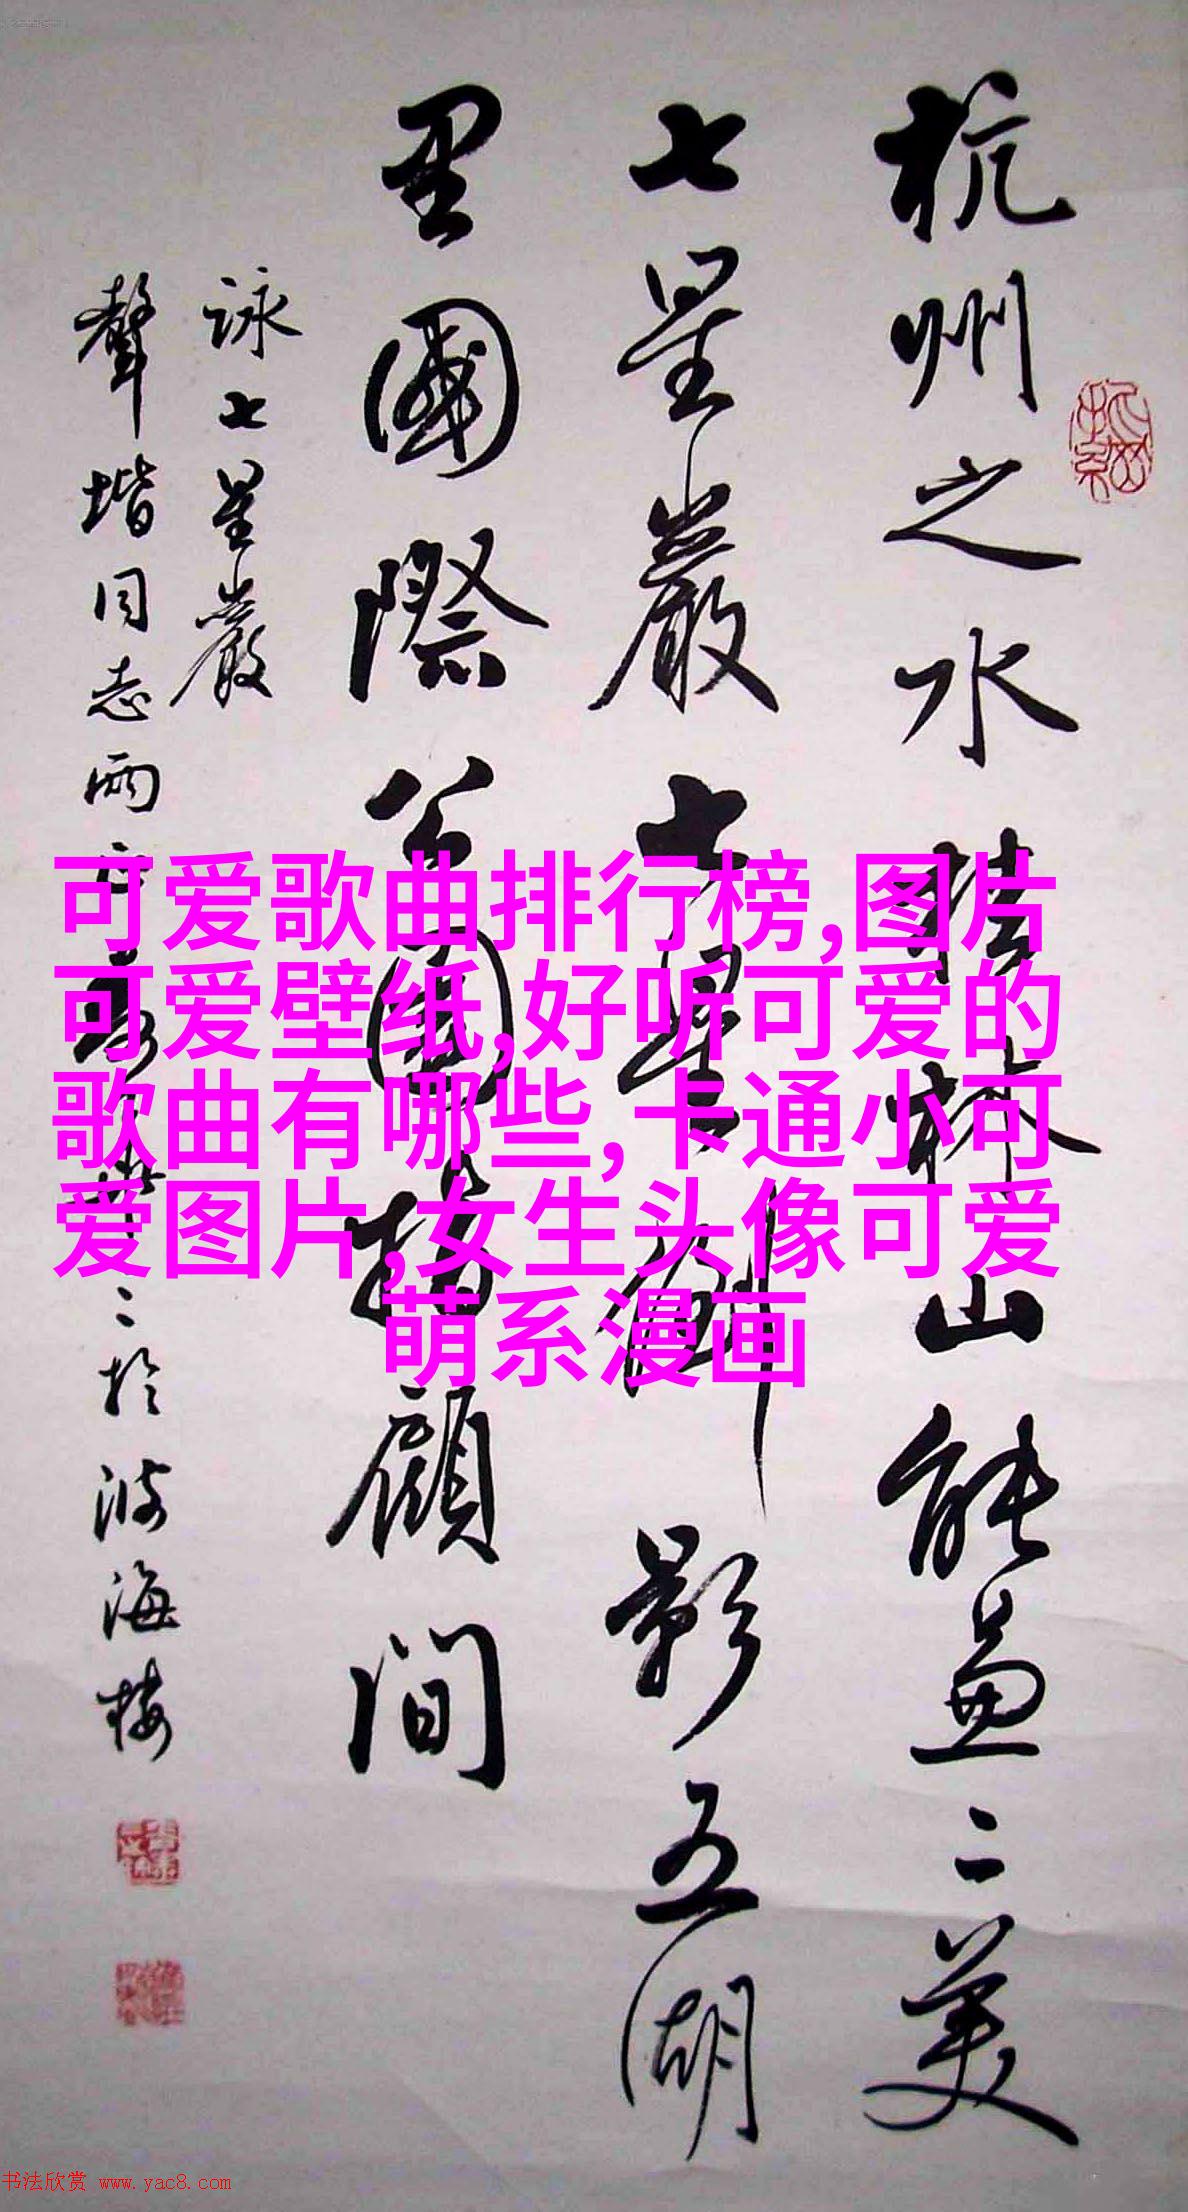 杭州之水桂林山能兼二美
七星巖七星影五湖
里國際公園指顧間
詠七星巖
聲堦同志雨
於波海楼
可爱歌曲排行榜,图片
可爱壁纸,好听可爱的
歌曲有哪些,卡通小可
爱图片,女生头像可爱
萌系漫画
书法欣赏 www.yac8.com